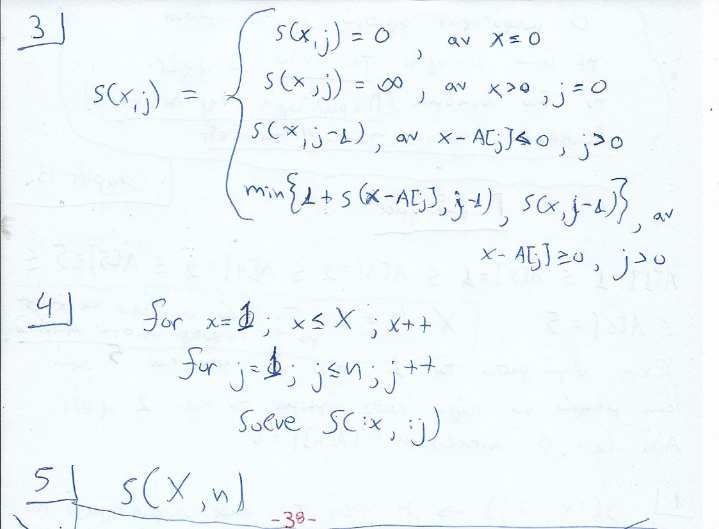 3
S(x,j) = 0 , αν x ≤ 0
S(x,j) = S(x,j) = ∞ , αν x>0 , j=0
S(x,j-1) , αν x-A[j]≤0 , j>0
min{1+S(x-A[j], j-1) , S(x,j-1)} , αν
x-A[j]≥0 , j>0
4
for x=1; x≤X ; x++
for j=1; j≤n; j++
Solve S(:x, :j)
5 S(X,n)
-38-